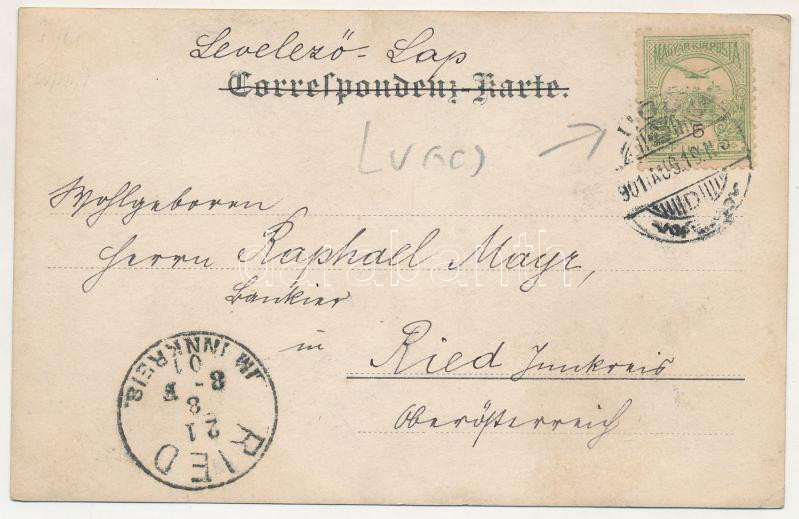 Levelező-Lap
Correspondenz-Karte.
MAGYAR KIR. POSTA
5
901 AUG. 19.
D
Wohlgeboren
Herrn Raphael Mayr,
Bankier
in
Ried Innkreis
Oberösterreich
darabanth
RIED
IM INNKREIS.
21
8
8-
01